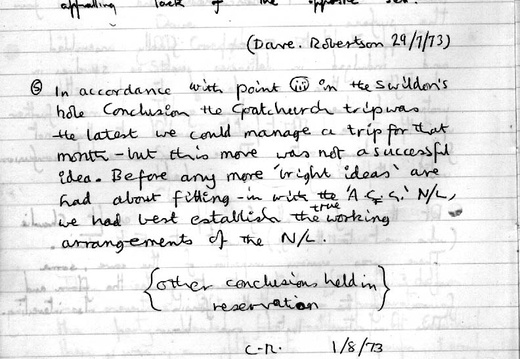 appalling lack of the opposite sex.
(Dave. Robertson 29/7/73)
⑤ In accordance with point (iii) in the Swildon's
hole Conclusion the Goatchurch trip was
the latest we could manage a trip for that
month - but this move was not a successful
idea. Before any more 'bright ideas' are
had about fitting-in with the 'A.C.G.' N/L,
we had best establish the true working
arrangements of the N/L.
{other conclusions held in
reservation}
C-R. 1/8/73